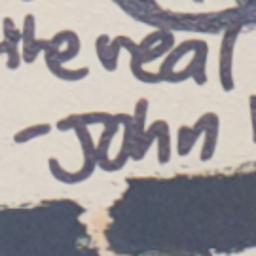 the real
-John